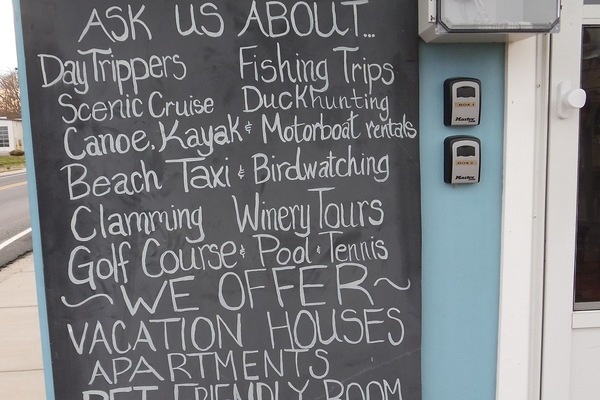 ASK US ABOUT...
DayTrippers Fishing Trips
Scenic Cruise Duckhunting
Canoe, Kayak & Motorboat rentals
Beach Taxi & Birdwatching
Clamming Winery Tours
Golf Course & Pool & Tennis
~WE OFFER~
VACATION HOUSES
APARTMENTS
PET FRIENDLY ROOM
BOX 1
Master
BOX 2
Master